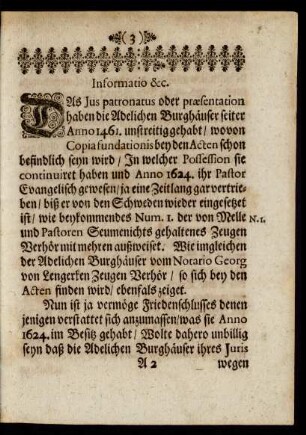 (3)
Informatio &c.
DAs Jus patronatus oder præsentation
haben die Adelichen Burghäuser seiter
Anno 1461. unstreitig gehabt/ wovon
Copia fundationis bey den Acten schon
befindlich seyn wird/ In welcher Possession sie
continuiret haben und Anno 1624. ihr Pastor
Evangelisch gewesen/ ja eine Zeitlang gar vertrie-
ben/ biß er von den Schweden wieder eingesetzet
ist/ wie beykommendes Num. 1. der von Melle N. 1.
und Pastoren Seumenichts gehaltenes Zeugen
Verhör mit mehren außweiset. Wie imgleichen
der Adelichen Burghäuser vom Notario Georg
von Lengerken Zeugen Verhör/ so sich bey den
Acten finden wird/ ebenfals zeiget.
Nun ist ja vermöge Friedenschlusses denen
jenigen verstattet sich anzumassen/ was sie Anno
1624. im Besitz gehabt/ Wolte dahero unbillig
seyn daß die Adelichen Burghäuser ihres Juris
A 2 wegen